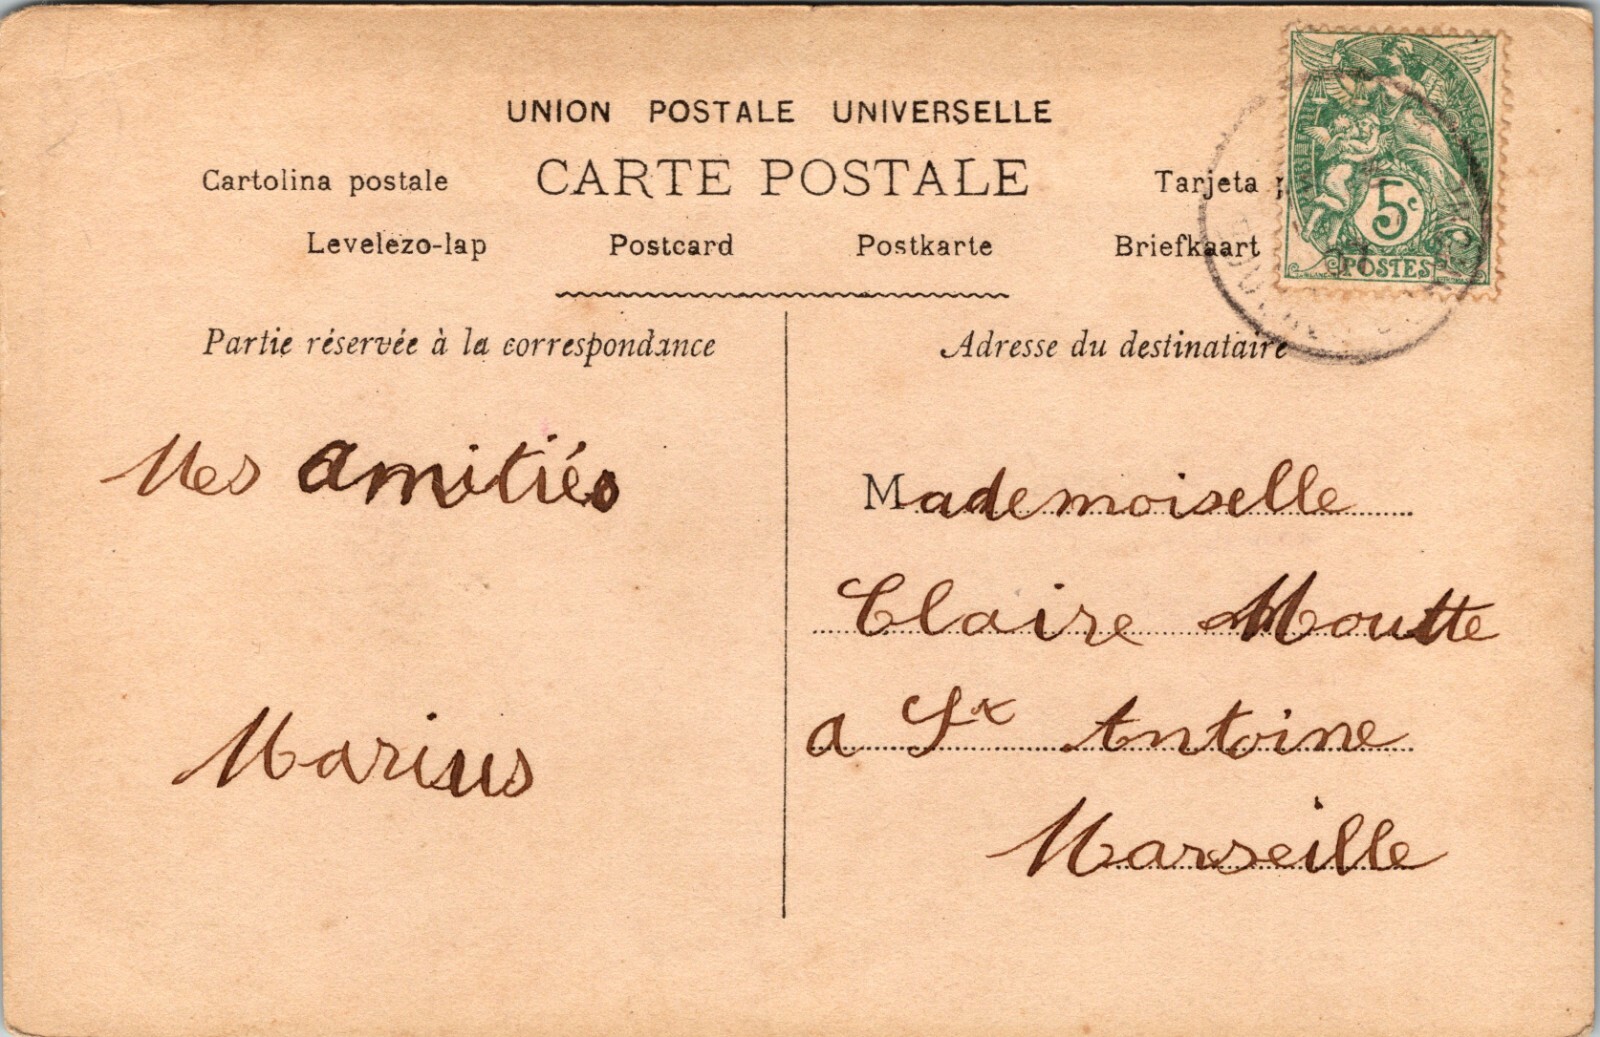 UNION POSTALE UNIVERSELLE
Cartolina postale CARTE POSTALE Tarjeta
Levelezo-lap Postcard Postkarte Briefkaart
Partie réservée à la correspondance
Adresse du destinataire
5c
POSTES
Mes amitiés
Marius
Mademoiselle
Claire Moutte
a St Antoine
Marseille